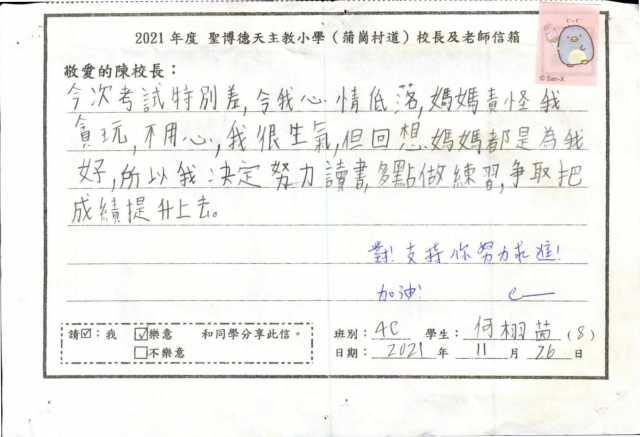 2021 年度 聖博德天主教小學（蒲崗村道）校長及老師信箱
© San-X
敬愛的陳校長：
今次考試特別差,令我心情低落,媽媽責怪我
貪玩,不用心,我很生氣,但回想媽媽都是為我
好,所以我決定努力讀書,多點做練習,爭取把
成績提升上去。
對!支持你努力求進!
加油!
請☑：我 ☑樂意 和同學分享此信。
□不樂意
班別：4C 學生：何栩茵 (8)
日期：2021 年 11 月 26 日